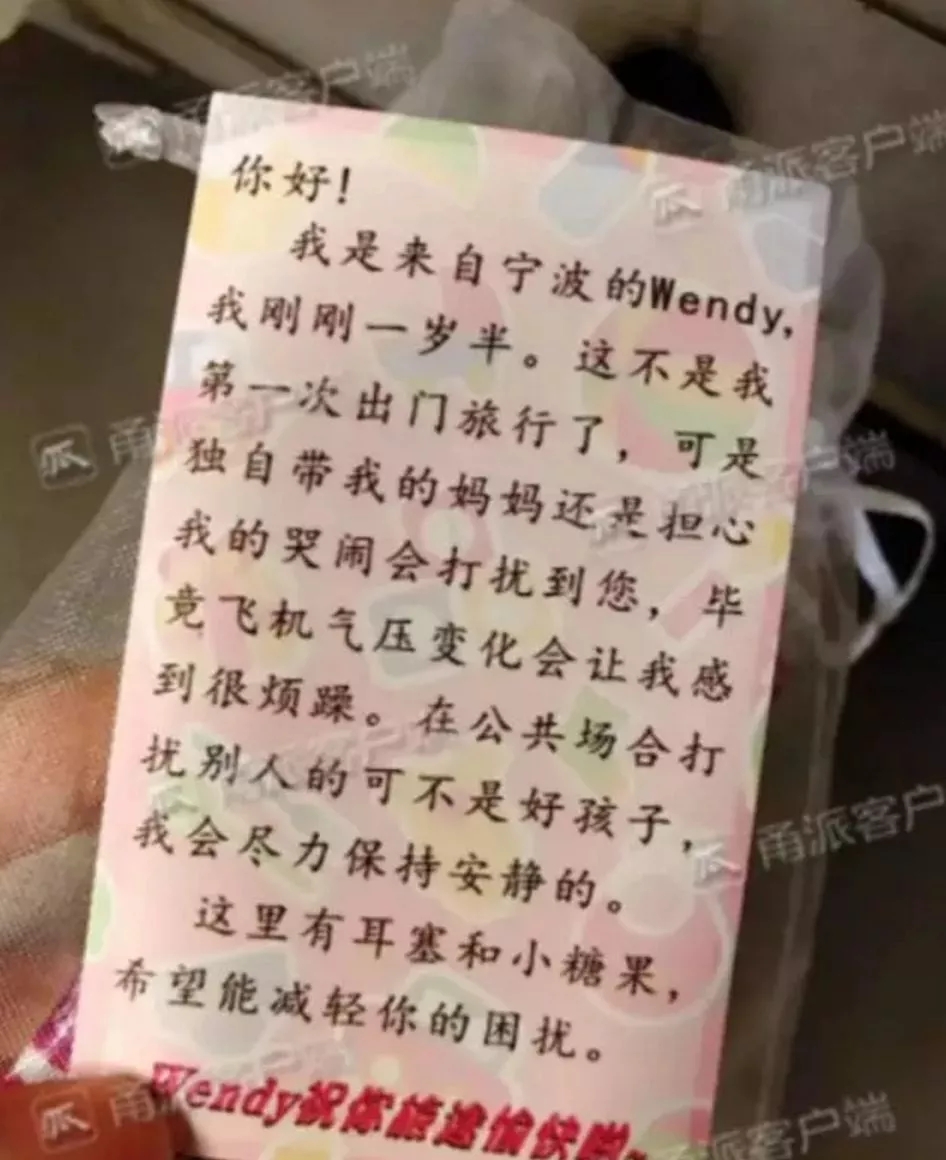 你好!
我是来自宁波的Wendy,
我刚刚一岁半。这不是我
第一次出门旅行了，可是
独自带我的妈妈还是担心
我的哭闹会打扰到您，毕
竟飞机气压变化会让我感
到很烦躁。在公共场合打
扰别人的可不是好孩子，
我会尽力保持安静的。
这里有耳塞和小糖果，
希望能减轻你的困扰。
Wendy祝你旅途愉快啊~
甬派客户端
甬派客户端
甬派客户端
甬派客户端
甬派客户端
甬派客户端